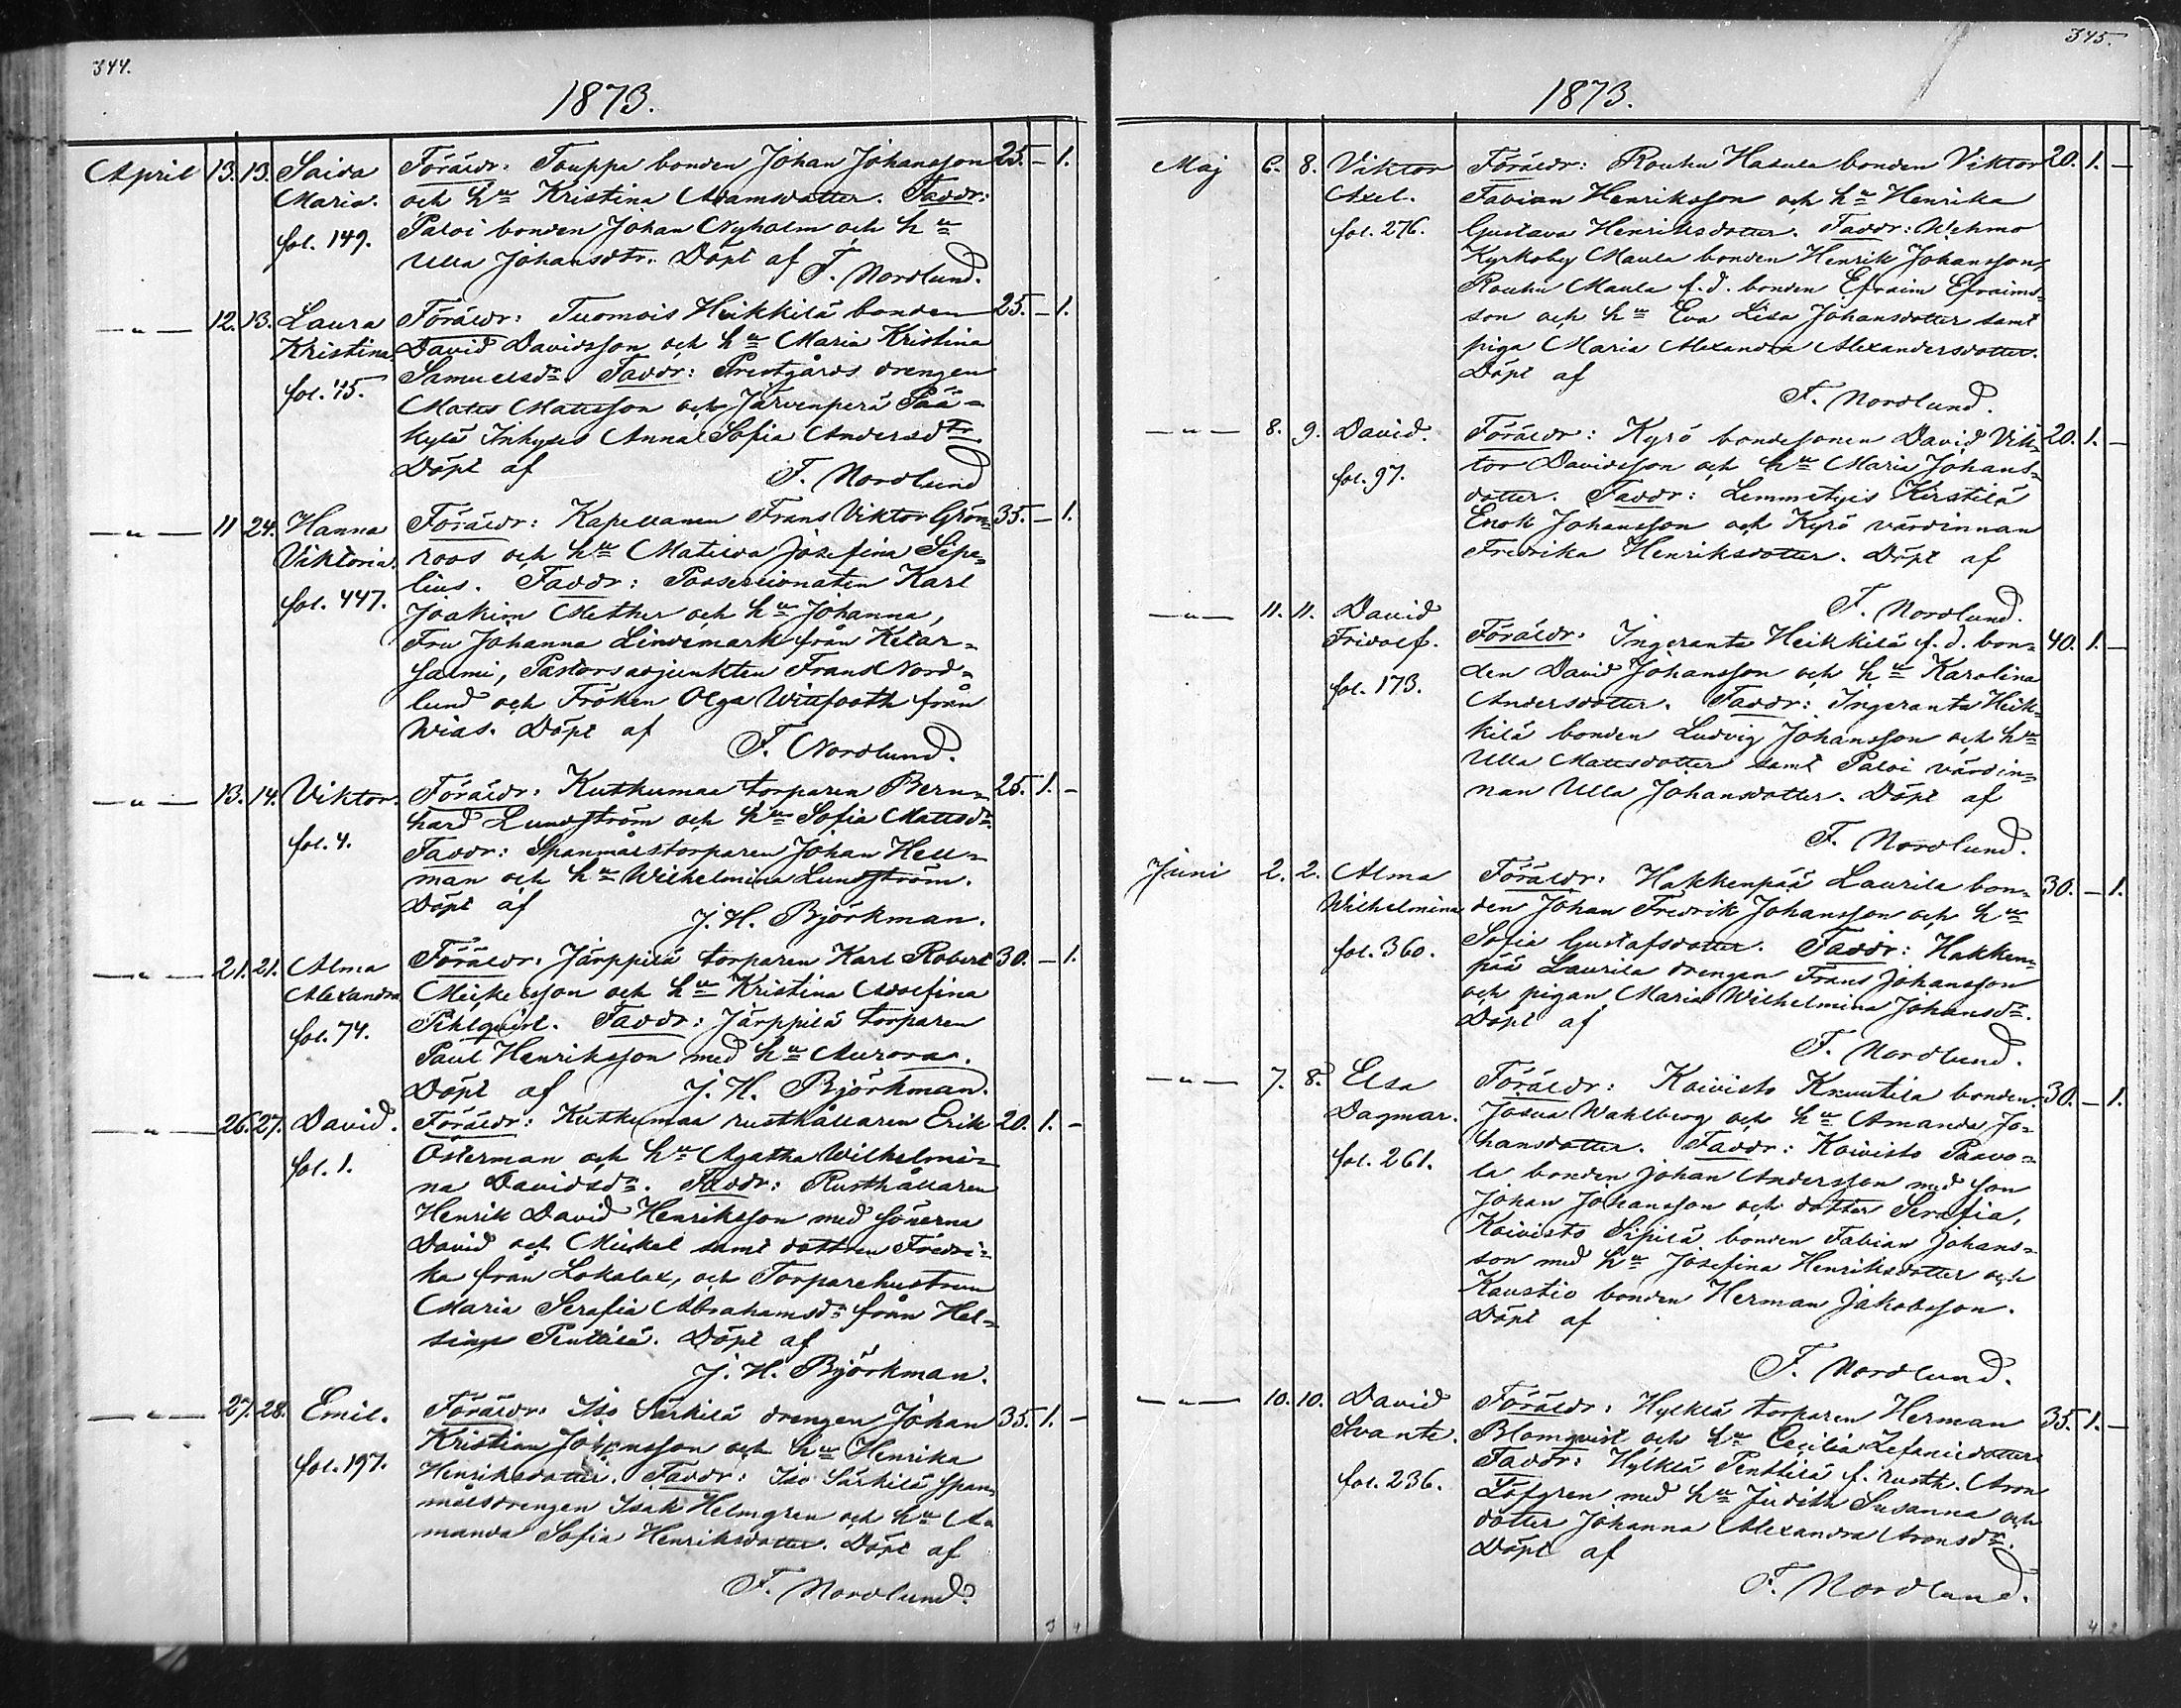 344.
1873.
April 13. 13. Saida Föräldr: Touppa bonden Johan Johansson 25. – 1.
Maria. och hu Kristina Adamsdotter. Faddr:
fol. 149. Paloi bonden Johan Nyholm och hu
Ulla Johansdtr. Döpt af F. Nordlund.
–„– 12. 13. Laura Föräldr: Tuomois Heikkilä bonden 25. – 1.
Kristina. David Davidsson och hu Maria Kristina
Samuelsdr. Faddr: Prestgårds drengen
fol. 45. Matts Mattsson och Järvenperä Pää-
kylä Inhyses Anna Sofia Andersdtr
Döpt af F. Nordlund
–„– 11 24. Hanna Föräldr: Kapellanen Frans Viktor Grön- 35. – 1.
Viktoria. roos och hu Matilda Josefina Sipe-
lius. Faddr: Possessionaten Karl
fol. 447. Joakim Mether och hu Johanna,
Fru Johanna Lindemark från Ketar-
salmi, Pastorsadjunkten Frans Nord-
lund och Fröken Olga Wittfooth från
Wias. Döpt af F. Nordlund.
–„– 13. 14. Viktor. Föräldr: Kuthumaa torparen Bern- 25. 1. –
hard Lundström och hu Sofia Mattsdr.
fol. 4. Faddr: Spanmålstorparen Johan Hell-
man och hu Wilhelmina Lundström.
Döpt af J. H. Björkman.
–„– 21. 21. Alma Föräldr: Järppilä torparen Karl Robert 30. – 1.
Alexandra Mickelsson och hu Kristina Adolfina
fol. 74. Pihlqvist. Faddr: Järppilä torparen
Paul Henriksson med hu Aurora.
Döpt af J. H. Björkman.
–„– 26. 27. David. Föräldr: Kuthumaa rusthållaren Erik 20. 1. –
fol. 1. Österman och hu Agatha Wilhelmi-
na Davidsdr. Faddr: Rusthållaren
Henrik David Henriksson med sönerna
David och Mickel samt dottren Fredri-
ka från Lokalax, och Torparehustrun
Maria Serafia Abrahamsdr från Hel-
singe Penttilä. Döpt af
J. H. Björkman.
–„– 27. 28. Emil. Föräldr: Iso Särkilä drengen Johan 35. 1. –
Kristian Johansson och hu Henrika
fol. 197. Henriksdotter. Faddr: Iso Särkilä span-
målsdrengen Isak Helmgren och hu A-
manda Sofia Henriksdotter. Döpt af
F. Nordlund.
3 4
345.
1873.
Maj 6. 8. Viktor Föräldr: Rouhu Hasula bonden Viktor 20. 1. –
Axel. Fabian Henriksson och hu Henrika
fol. 276. Gustava Henriksdotter. Faddr: Wehmo
Kyrkoby Maula bonden Henrik Johansson,
Rouhu Maula f.d. bonden Efraim Efraims-
son och hu Eva Lisa Johansdotter samt
piga Maria Alexandra Alexandersdotter.
Döpt af
F. Nordlund.
–„– 8. 9. David. Föräldr: Kyrö bondesonen David Vik- 20. 1. –
tor Davidsson och hu Maria Johans-
fol. 97. dotter. Faddr: Lemmetyis Kirstilä
Enok Johansson och Kyrö värdinnan
Fredrika Henriksdotter. Döpt af
F. Nordlund.
–„– 11. 11. David
Fridolf. Föräldr: Ingeranta Heikkilä f.d. bon- 40. 1. –
fol. 173. den David Johansson och hu Karolina
Andersdotter. Faddr: Ingeranta Heik-
kilä bonden Ludvig Johansson och hu
Ulla Mattsdotter samt Paloi värdin-
nan Ulla Johansdotter. Döpt af
F. Nordlund.
Juni 2. 2. Alma Föräldr: Hakkenpää Laurila bon- 30. – 1.
Wilhelmina den Johan Fredrik Johansson och hu
fol. 360. Sofia Gustafsdotter. Faddr: Hakken-
pää Laurila drengen Frans Johansson
och pigan Maria Wilhelmina Johansdr.
Döpt af
F. Nordlund.
–„– 7. 8. Elsa Föräldr: Koivisto Knuutila bonden 30. – 1.
Dagmar. Josua Wahlberg och hu Amanda Jo-
hansdotter. Faddr: Koivisto Paavo-
fol. 261. la bonden Johan Andersson med son
Johan Johansson och dotter Serafia,
Koivisto Sipilä bonden Fabian Johans-
son med hu Josefina Henriksdotter och
Kaustio bonden Herman Jakobsson.
Döpt af
F. Nordlund.
–„– 10. 10. David Föräldr: Hylklä torparen Herman 35. 1. –
Svante. Blomqvist och hu Cecilia Zefaniedotter
Faddr: Hylklä Penttilä f. rusth. Aron
fol. 236. Löfgren med hu Judith Susanna och
dotter Johanna Alexandra Aronsdr.
Döpt af
F. Nordlund.
4 3